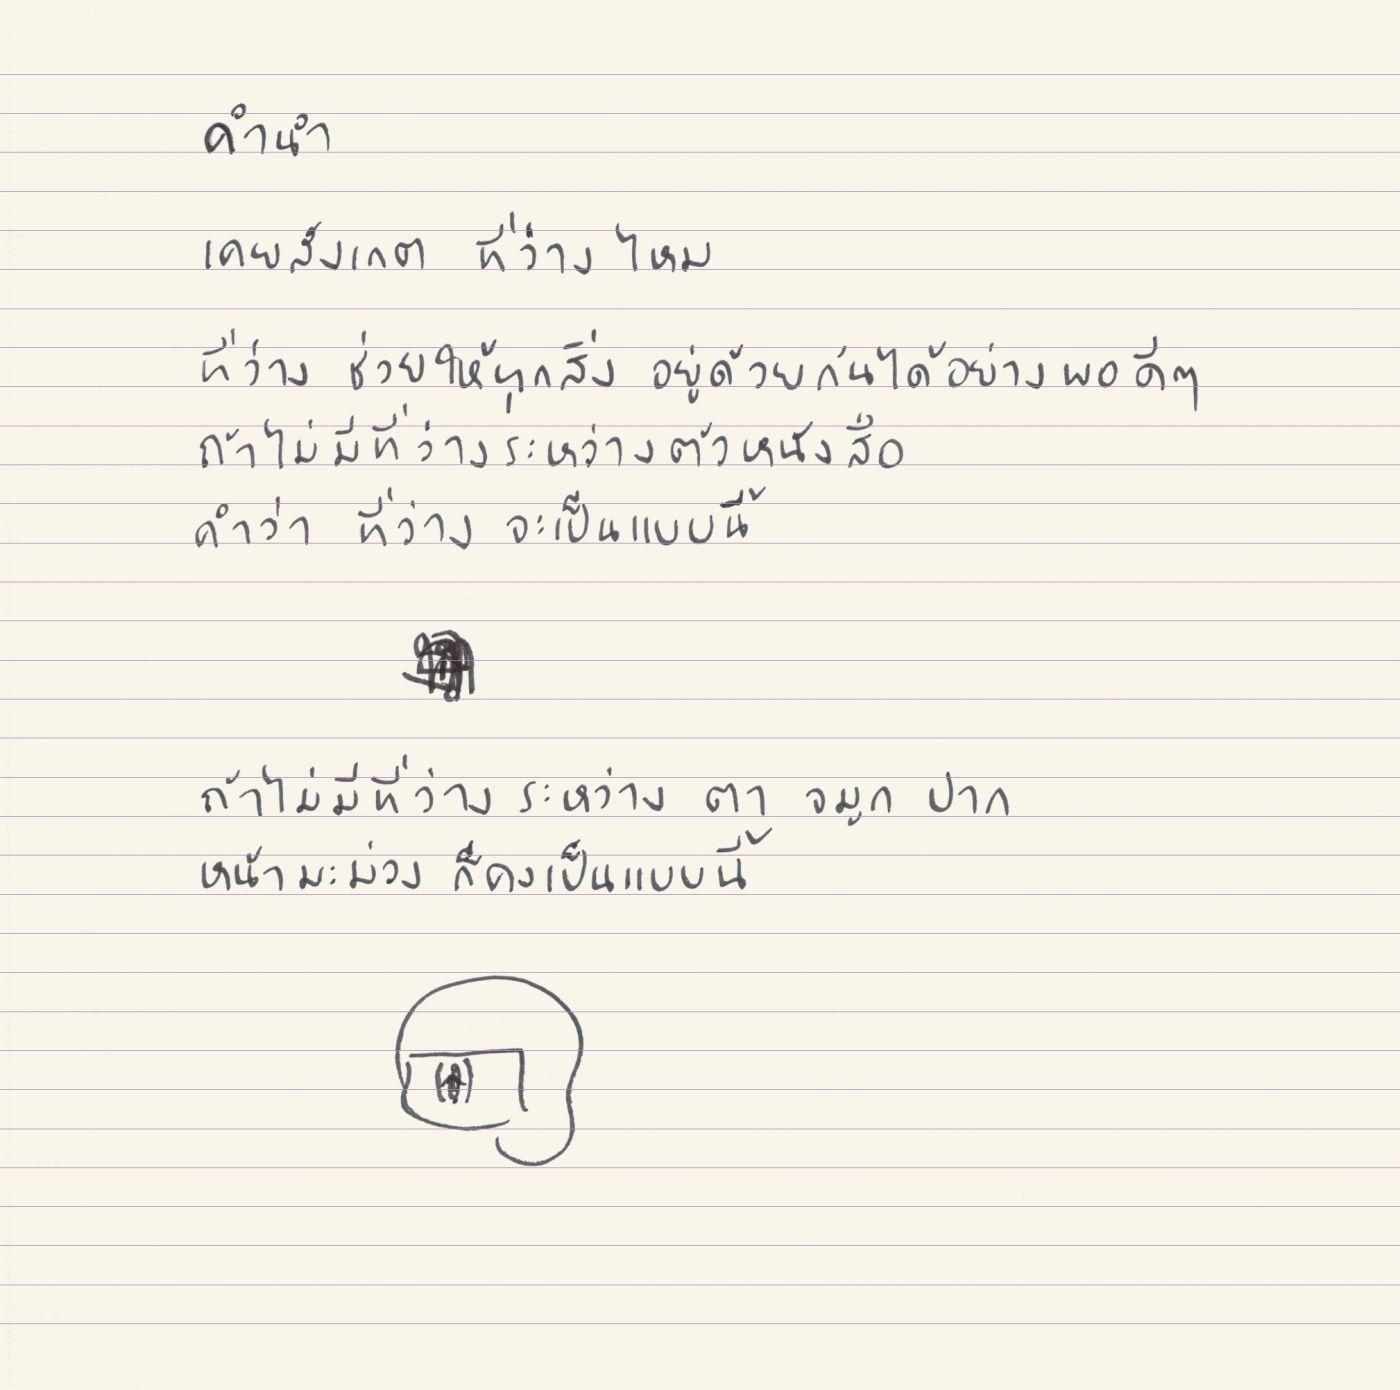 คำนำ
เคยสังเกต ที่ว่าง ไหม
ที่ว่าง ช่วยให้ทุกสิ่ง อยู่ด้วยกันได้อย่างพอดีๆ
ถ้าไม่มีที่ว่างระหว่างตัวหนังสือ
คำว่า ที่ว่าง จะเป็นแบบนี้
ถ้าไม่มีที่ว่าง ระหว่าง ตา จมูก ปาก
หน้ามะม่วง ก็คงเป็นแบบนี้